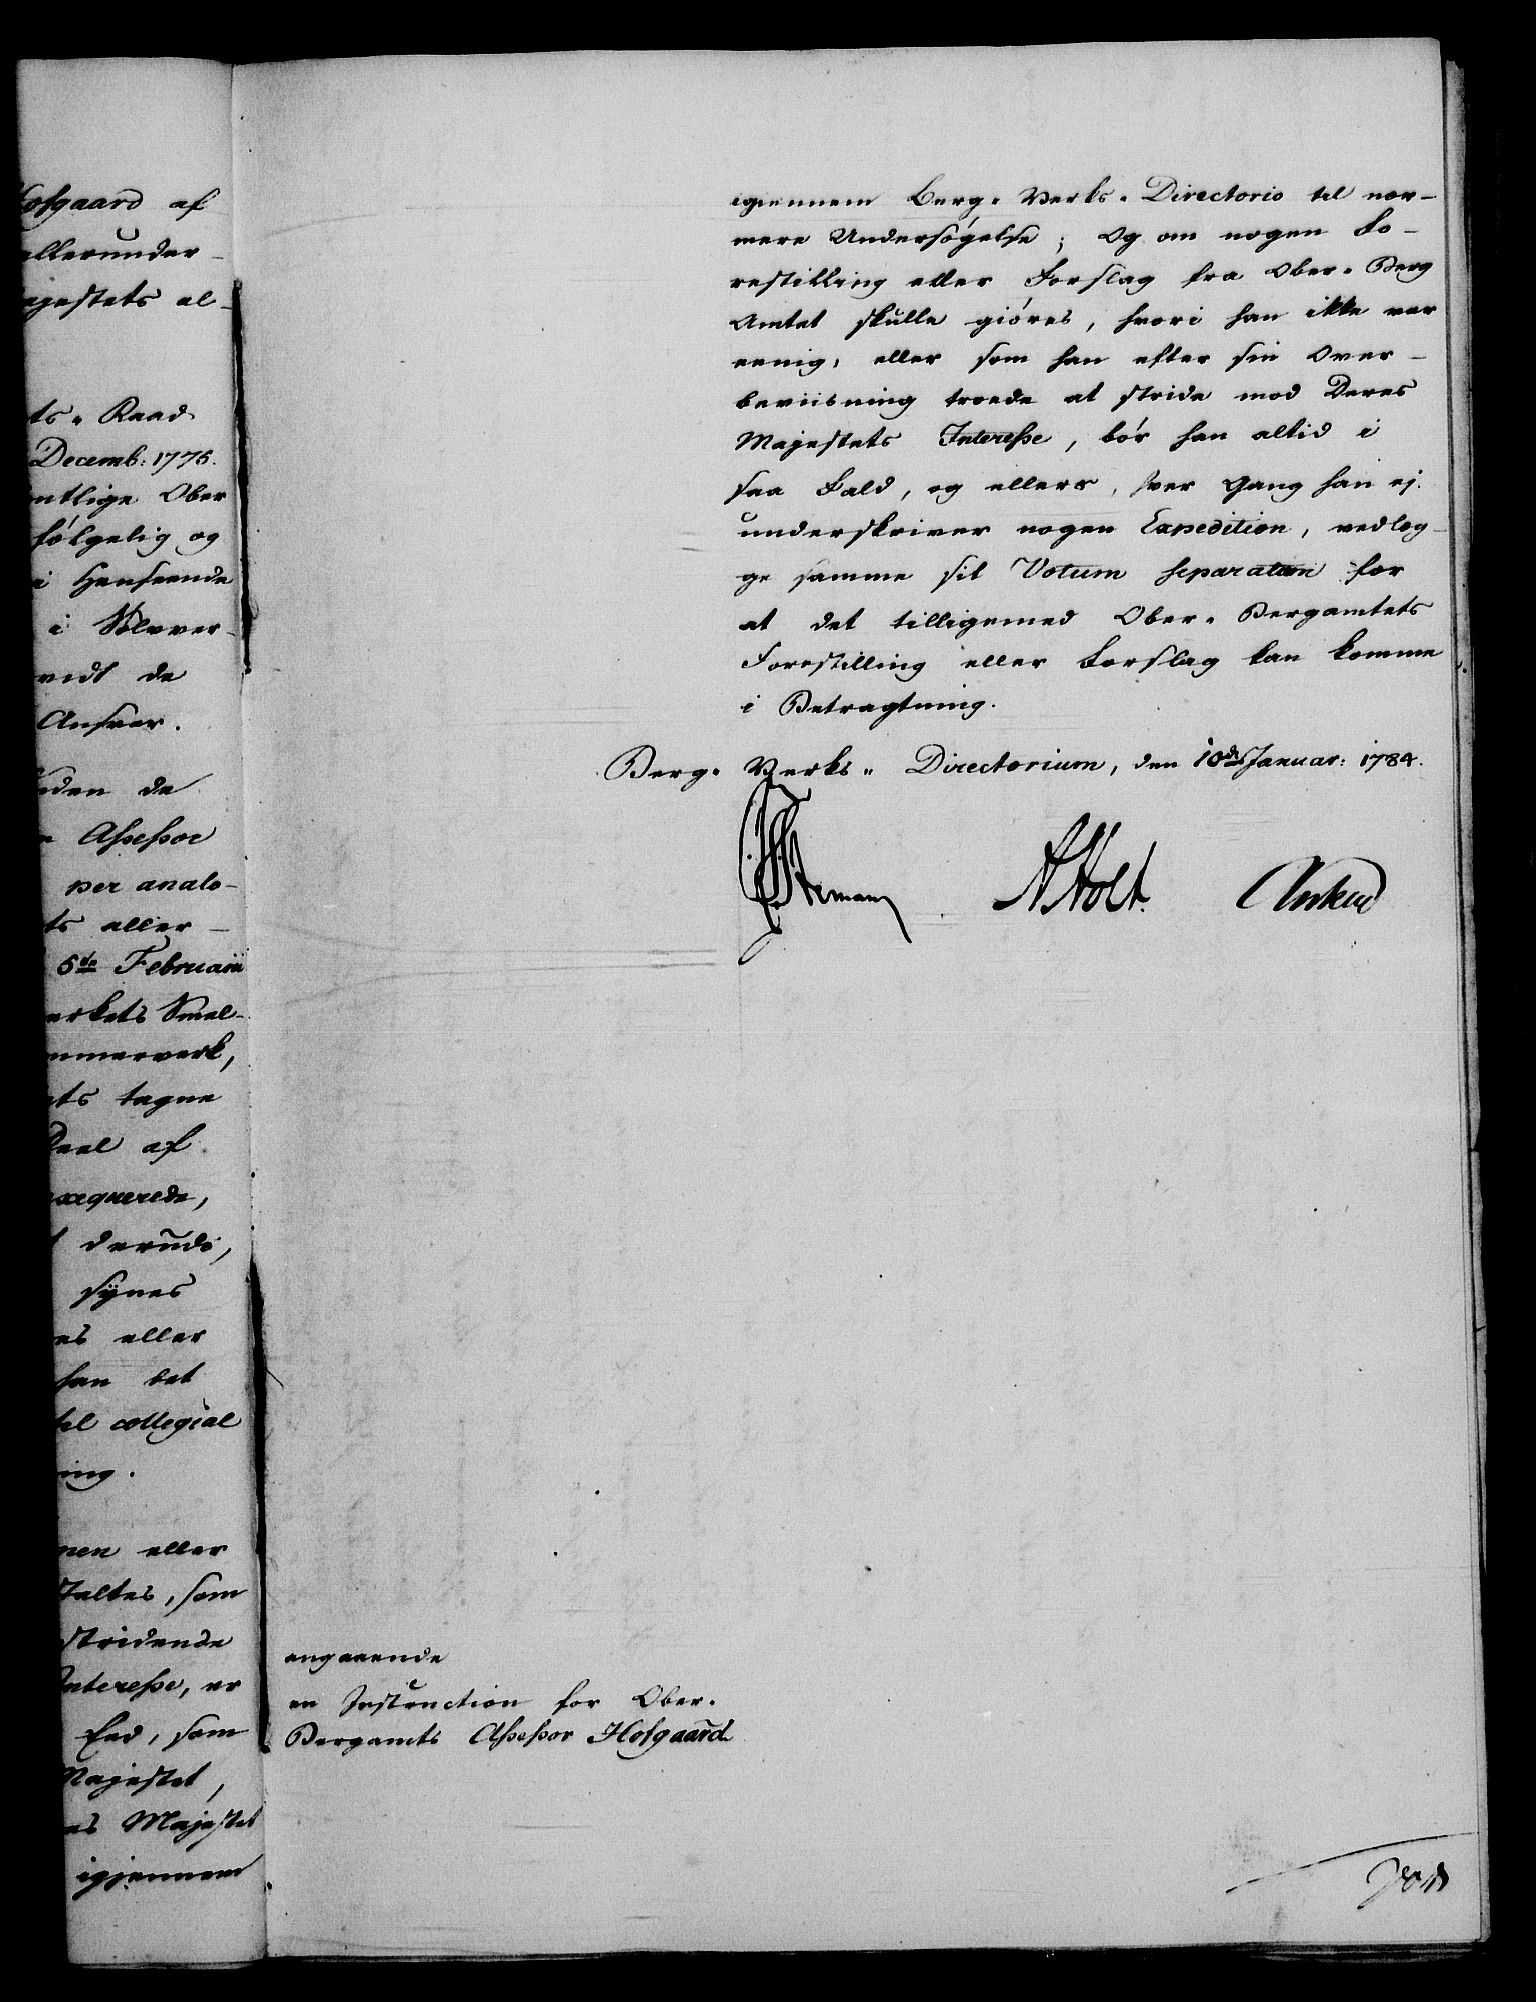 Hofgaard af
allerunder-
ajestets al-
ts- Raad
Decemb: 1775.
ntlige Ober
følgelig og
i Henseende
i Sølvver-
vidt de
Ansvar.
eden de
Assessor
per analo-
ts aller-
5te Februarii
erkets Smel-
mmerverk,
ets tagne
Deel af
exequerede,
derudi,
synes
es eller
han det
til collegial
ning.
nen eller
staltes, som
stridende
Interesse, er
Eed, som
Majestet,
es Majestet
igjennem
igiennem Berg- Verks- Directorio til nær-
mere Undersøgelse; Og om nogen Fo-
restilling eller Forslag fra Ober- Berg
Amtet skulle giøres, hvori han ikke var
eenig, eller som han efter sin Over-
beviisning troede at stride mod Deres
Majestets Interesse, bør han altid i
saa Fald, og ellers, hver Gang han ej
underskriver nogen Expedition, vedlæg-
ge samme sit Votum separatum for
at det tilligemed Ober- Bergamtets
Forestilling eller Forslag kan komme
i Betragtning.
Berg- Verks- Directorium, den 10de Januar: 1784.
Stemann NHolt. Anker
angaaende
en Instruction for Ober-
Bergamts Assessor Hofgaard.